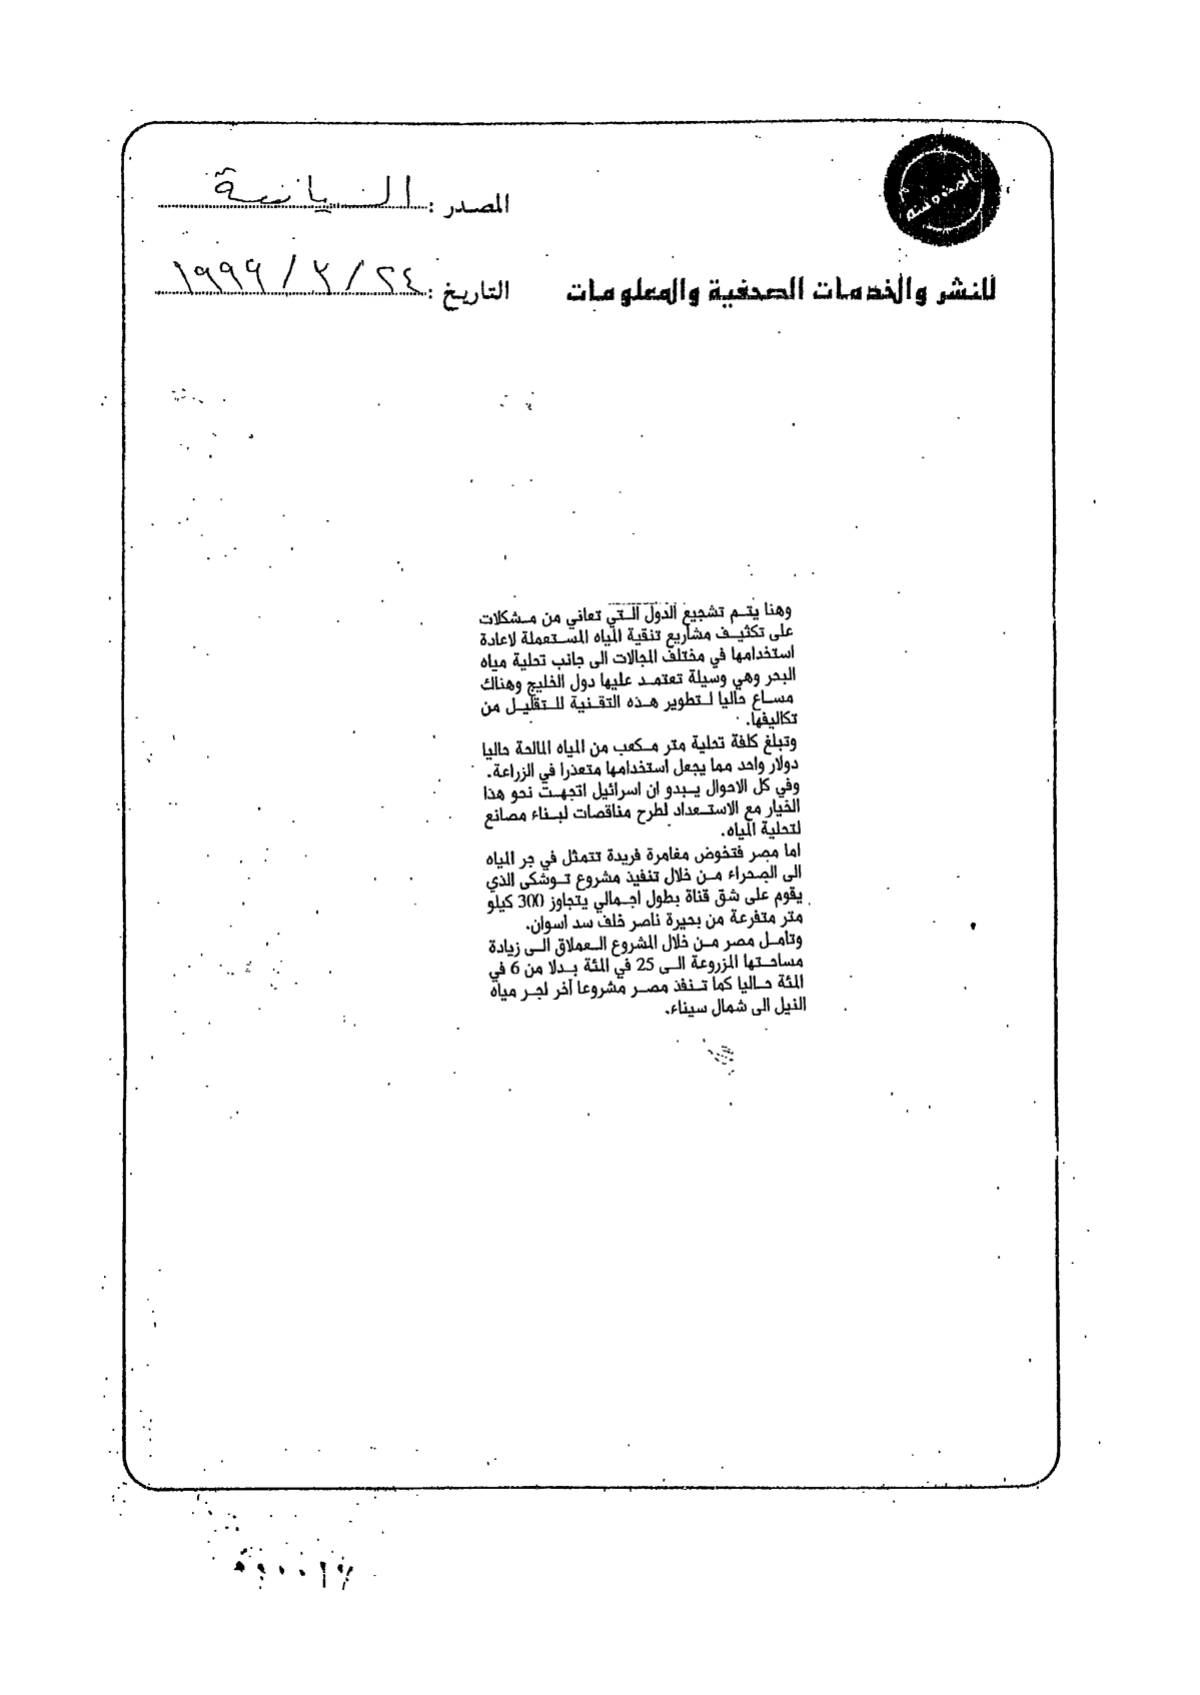 المصدر :
التاريخ : ٢٤ / ٢ / ١٩٩٩
للنشر والخدمات الصحفية والمعلومات
وهنا يتم تشجيع الدول التي تعاني من مشكلات
على تكثيف مشاريع تنقية المياه المستعملة لاعادة
استخدامها في مختلف المجالات الى جانب تحلية مياه
البحر وهي وسيلة تعتمد عليها دول الخليج وهناك
مساع حاليا لتطوير هذه التقنية للتقليل من
تكاليفها.
وتبلغ كلفة تحلية متر مكعب من المياه المالحة حاليا
دولار واحد مما يجعل استخدامها متعذرا في الزراعة.
وفي كل الاحوال يبدو ان اسرائيل اتجهت نحو هذا
الخيار مع الاستعداد لطرح مناقصات لبناء مصانع
لتحلية المياه.
اما مصر فتخوض مغامرة فريدة تتمثل في جر المياه
الى الصحراء من خلال تنفيذ مشروع توشكى الذي
يقوم على شق قناة بطول اجمالي يتجاوز 300 كيلو
متر متفرعة من بحيرة ناصر خلف سد اسوان.
وتامل مصر من خلال المشروع العملاق الى زيادة
مساحتها المزروعة الى 25 في المئة بدلا من 6 في
المئة حاليا كما تنفذ مصر مشروعا آخر لجر مياه
النيل الى شمال سيناء.